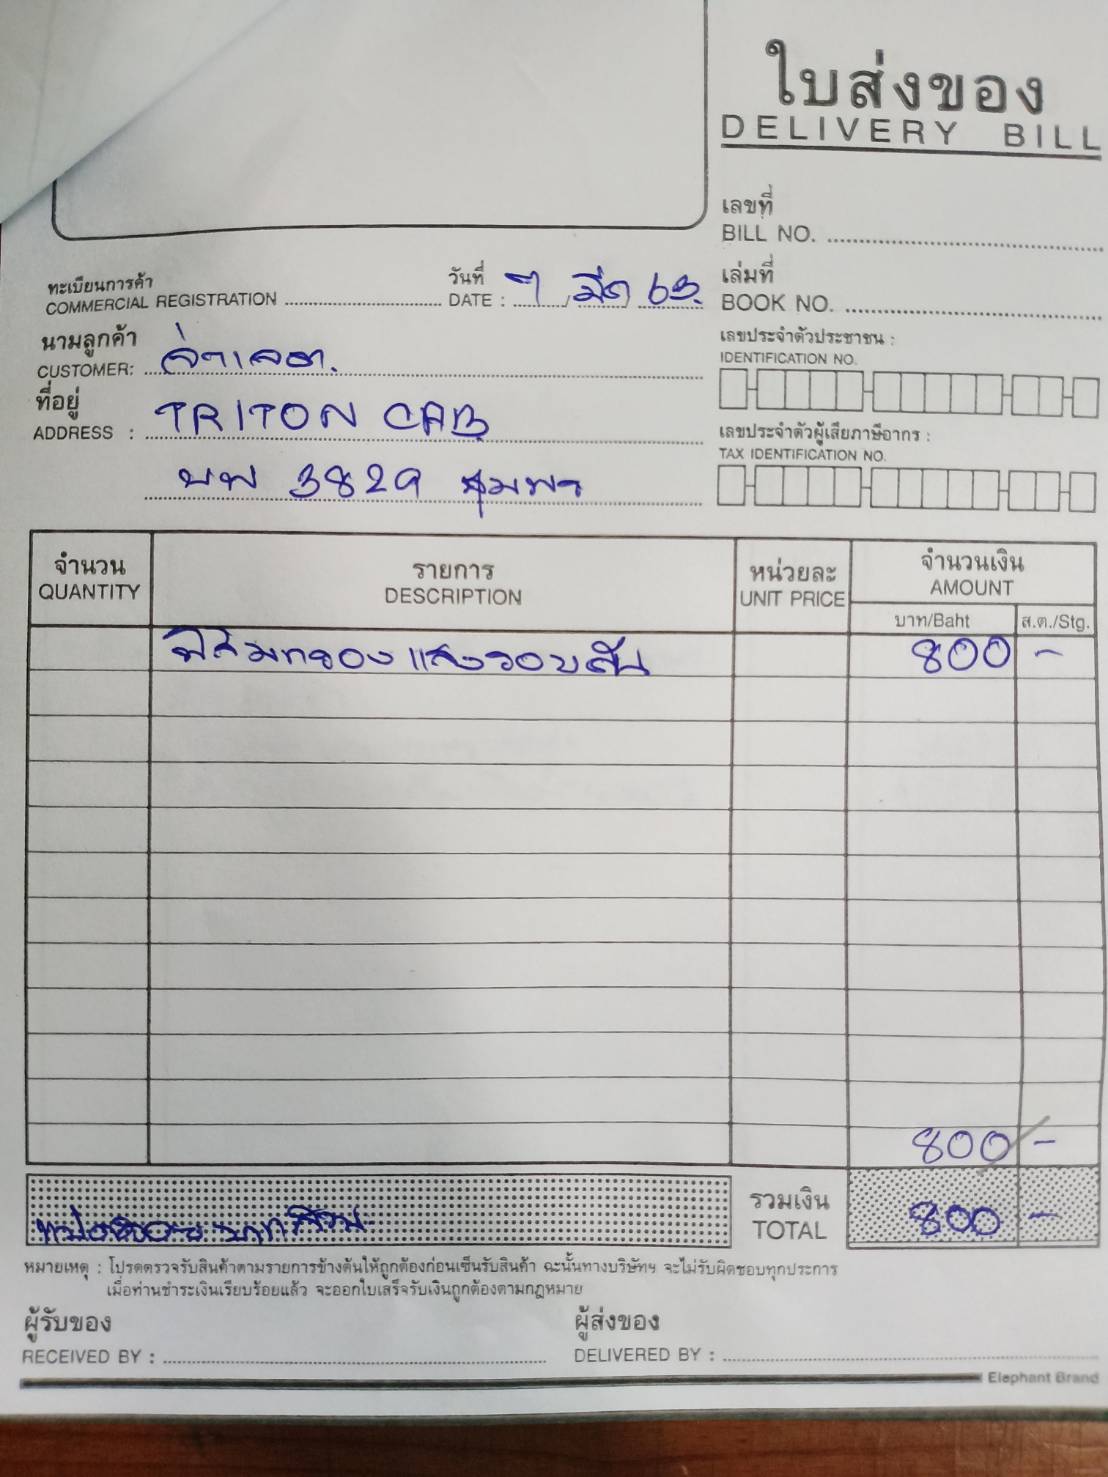 ใบส่งของ
DELIVERY BILL
เลขที่
BILL NO.
ทะเบียนการค้า
COMMERCIAL REGISTRATION
วันที่
DATE : 7 มีค 63.
เล่มที่
BOOK NO.
นามลูกค้า
CUSTOMER: จ่าเลอ
ที่อยู่
ADDRESS : TRITON CAB
บพ 3829 ชุมพร
เลขประจำตัวประชาชน :
IDENTIFICATION NO.
เลขประจำตัวผู้เสียภาษีอากร :
TAX IDENTIFICATION NO.
จำนวน
QUANTITY
รายการ
DESCRIPTION
หน่วยละ
UNIT PRICE
จำนวนเงิน
AMOUNT
บาท/Baht
ส.ต./Stg.
ฟิล์มกรองแสงรอบคัน 800 -
800 -
แปดร้อยบาทถ้วน
รวมเงิน
TOTAL
800 -
หมายเหตุ : โปรดตรวจรับสินค้าตามรายการข้างต้นให้ถูกต้องก่อนเซ็นรับสินค้า ฉะนั้นทางบริษัทฯ จะไม่รับผิดชอบทุกประการ
เมื่อท่านชำระเงินเรียบร้อยแล้ว จะออกใบเสร็จรับเงินถูกต้องตามกฎหมาย
ผู้รับของ
RECEIVED BY :
ผู้ส่งของ
DELIVERED BY :
Elephant Brand